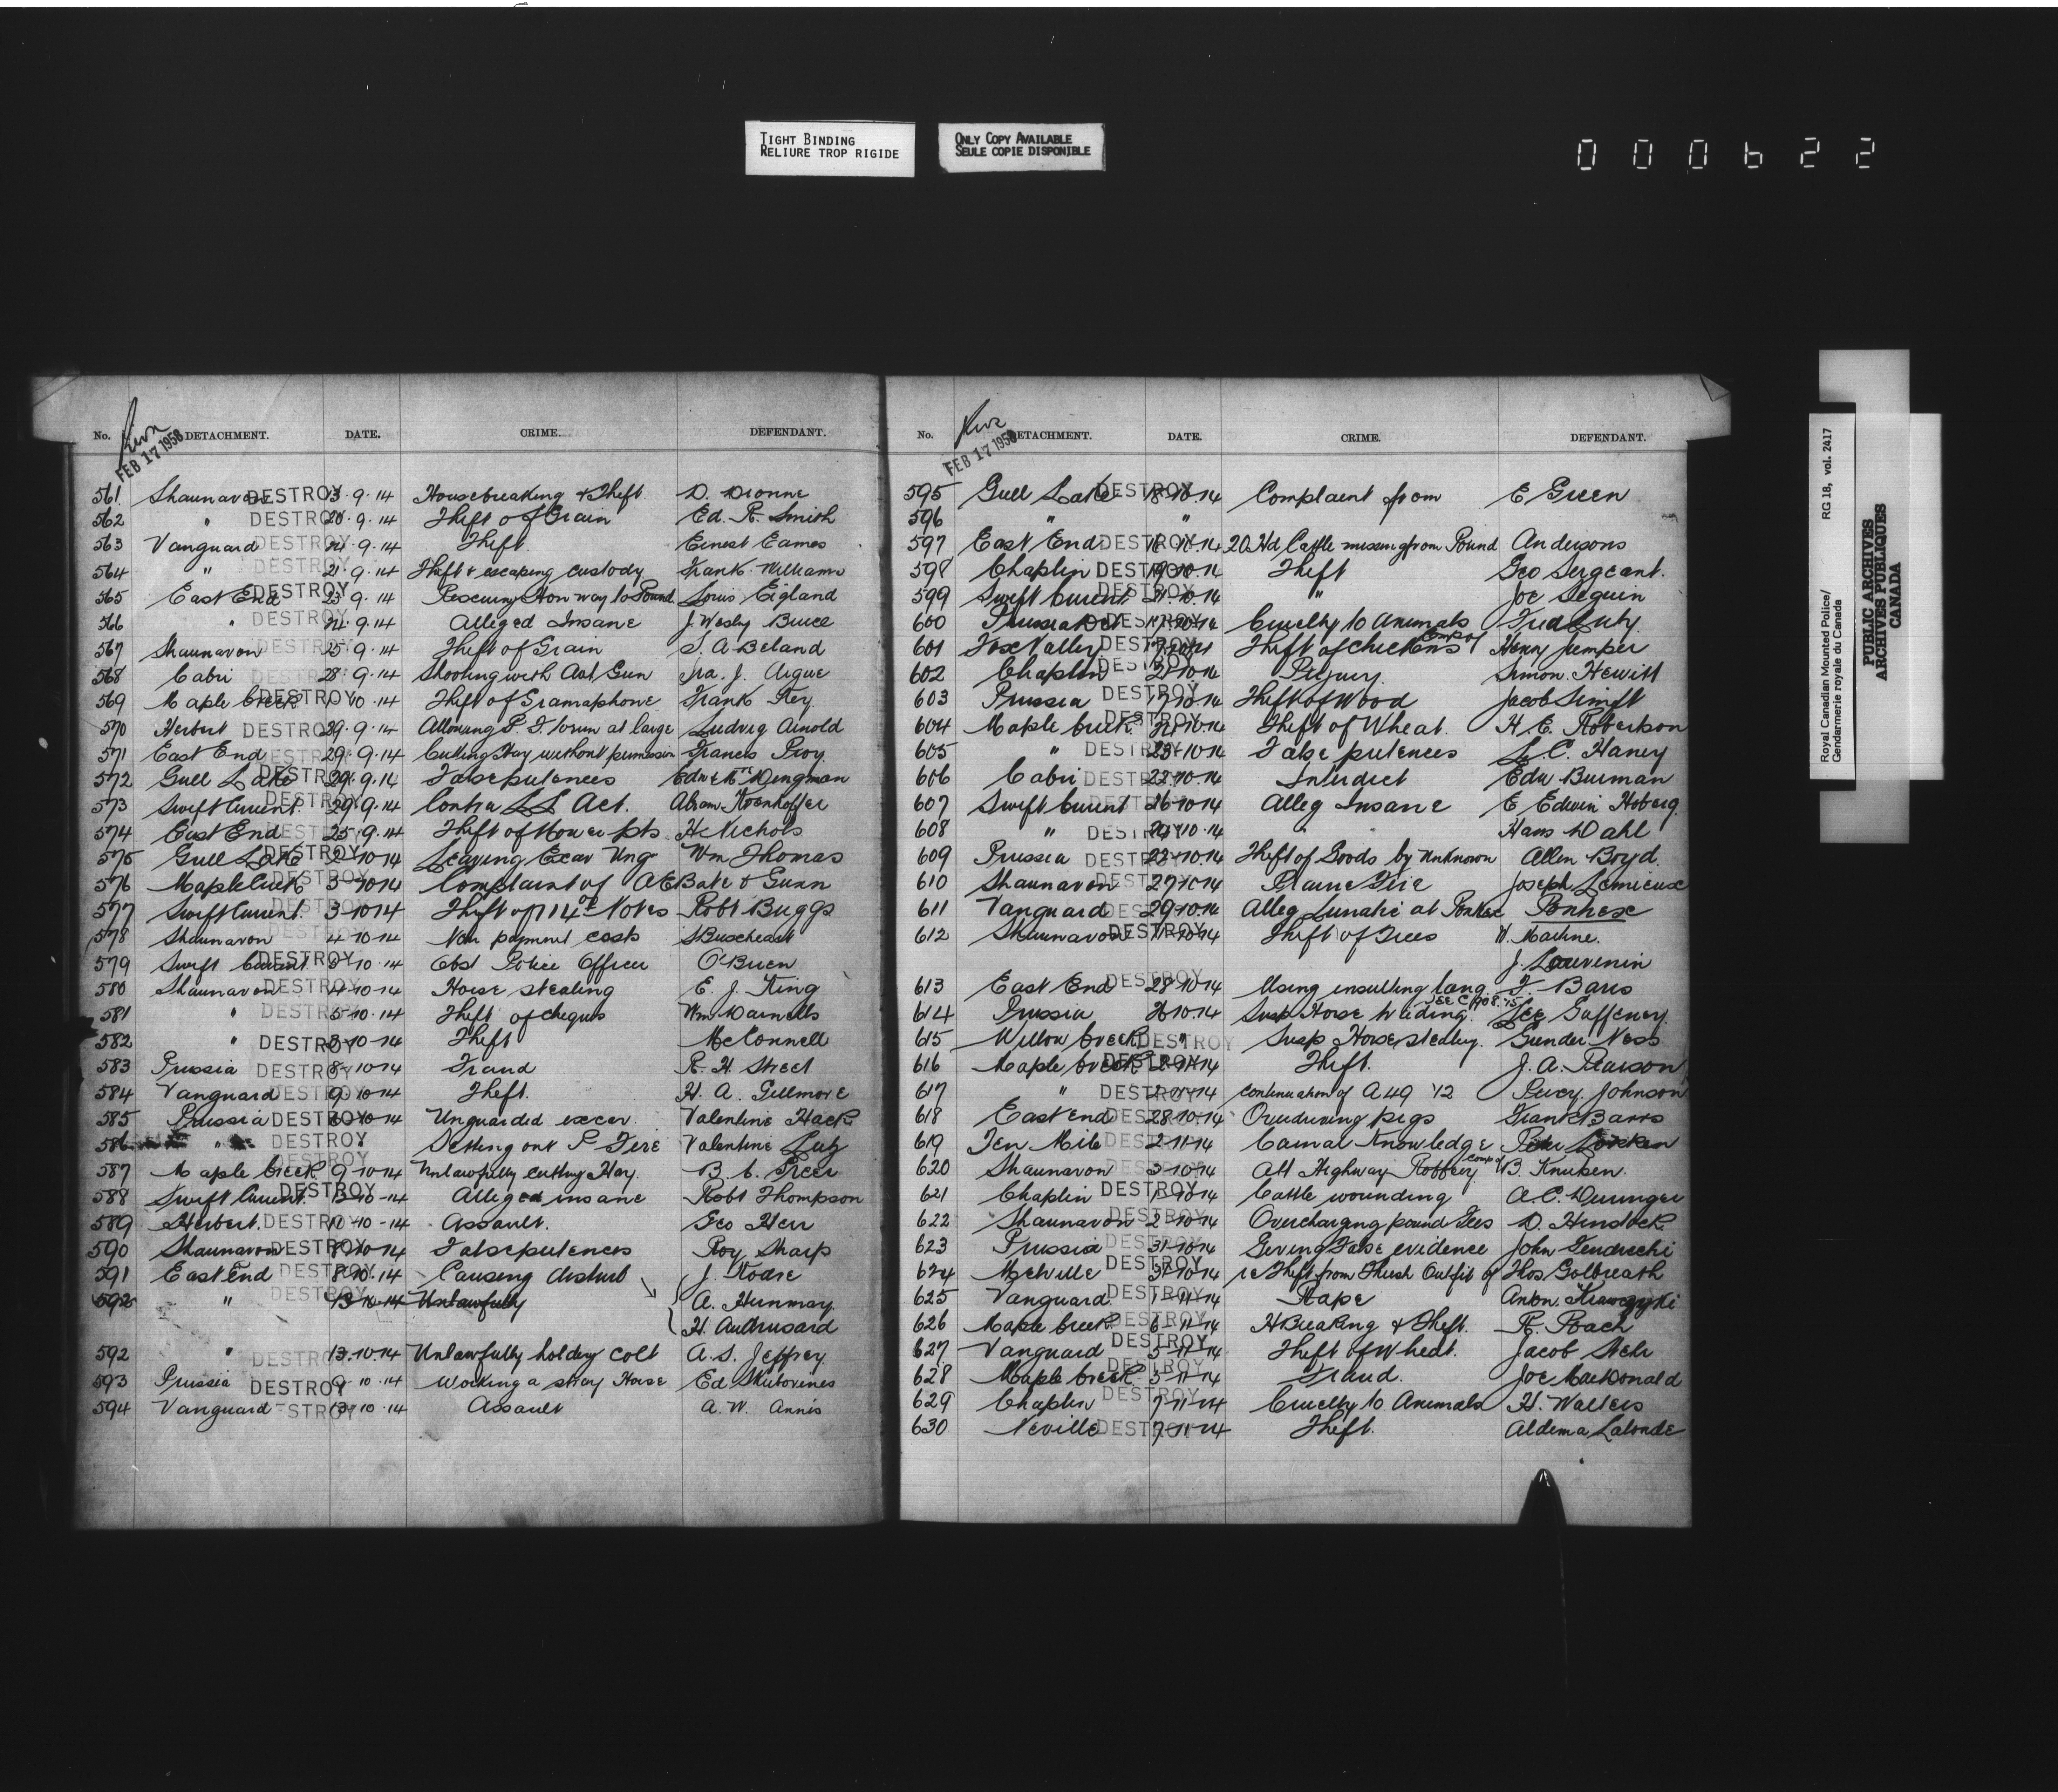 TIGHT BINDING
RELIURE TROP RIGIDE
ONLY COPY AVAILABLE
SEULE COPIE DISPONIBLE
000622
No. DETACHMENT. DATE. CRIME. DEFENDANT.
FEB 17 1958
561 Shaunavon DESTROY 13.9.14 Housebreaking & Theft D. Dionne
562 " DESTROY 20.9.14 Theft of Grain Ed. R. Smith
563 Vanguard DESTROY 24.9.14 Theft. Ernest Eames
564 " DESTROY 21.9.14 Theft & escaping custody Frank Williams
565 East End DESTROY 23.9.14 Rescuing on way to Pound Louis Eigland
566 " DESTROY 24.9.14 Alleged Insane J. Wesly Bruce
567 Shaunavon DESTROY 25.9.14 Theft of Grain S. A Beland
568 Cabri DESTROY 28.9.14 Shooting with Aut. Gun Ira. J. Aigue
569 Maple Creek DESTROY 1.10.14 Theft of Gramaphone Frank Key
570 Herbert DESTROY 29.9.14 Allowing P. F. to run at large Ludvig Arnold
571 East End DESTROY 29.9.14 Cutting Hay without permission Francis Proy
572 Gull Lake DESTROY 29.9.14 False pretences Dingman
573 Swift Current. DESTROY 29.9.14 Contra L L Act. Abram
574 East End DESTROY 25.9.14 Theft of Mower pts H Nichols
575 Gull Lake DESTROY 2-10-14 Leaving Excav Ung Wm Thomas
576 Maple Creek DESTROY 3-10-14 Complaint of A E Bate & Gunn
577 Swift Current. DESTROY 3-10-14 Theft of 114 Notes Robt Buggs
578 Shaunavon DESTROY 4-10-14 Non payment costs
579 Swift Current DESTROY 5-10-14 Obst Police Officer O'Brien
580 Shaunavon DESTROY 4-10-14 Horse stealing E. J. King
581 " DESTROY 5-10-14 Theft of cheques Wm Darnells
582 " DESTROY 5-10-14 Theft McConnell
583 Prussia DESTROY 8-10-14 Fraud R. H. Street
584 Vanguard DESTROY 9-10-14 Theft. H. A. Gillmore
585 Prussia DESTROY 6-10-14 Unguarded excav. Valentine Hack
586 " DESTROY Setting out P Fire Valentine Lutz
587 Maple Creek DESTROY 9-10-14 Unlawfully cutting Hay. B. C. Greer
588 Swift Current. DESTROY 13-10-14 Alleged insane Robt Thompson
589 Herbert. DESTROY 11-10-14 Assault. Geo Herr
590 Shaunavon DESTROY 8-10-14 False pretences Roy Sharp
591 East End DESTROY 8-10-14 Causing disturb J. Roase
592 " DESTROY 13-10-14 Unlawfully A. Hunmay.
H.
592 " DESTROY 13.10.14 Unlawfully holding colt A. S. Jeffrey.
593 Prussia DESTROY 9.10.14 Working a stray Horse Ed Skutovines
594 Vanguard DESTROY 13.10.14 Assault A. W. Annis
No. DETACHMENT. DATE. CRIME. DEFENDANT.
FEB 17 1958
595 Gull Lake DESTROY 18.10.14 Complaint from E Green
596 " "
597 East End DESTROY 18.10.14 20 Hd Cattle missing from Pound Andersons
598 Chaplin DESTROY 19.10.14 Theft Geo Sergeant.
599 Swift Current DESTROY 21.10.14 " Joe Seguin
600 Prussia DESTROY 17.10.14 Cruelty to Animals Fred Lutz.
601 Fox Valley DESTROY Theft of chickens Comp of Henry Jemper
602 Chaplin DESTROY 21-10-14 Perjury. Simon. Hewitt
603 Prussia DESTROY 17-10-14 Theft of Wood Jacob Simft
604 Maple Creek DESTROY 21-10-14 Theft of Wheat. H E. Robertson
605 " DESTROY 23-10-14 False pretences L. C. Haney
606 Cabri DESTROY 22-10-14 Interdict Edw Burman
607 Swift Current DESTROY 26-10-14 Alleg Insane E Edwin Hoberg.
608 " DESTROY 29-10-14 Hans Dahl
609 Prussia DESTROY 22-10-14 Theft of Goods by Unknown Allen Boyd.
610 Shaunavon DESTROY 27-10-14 Prairie Fire Joseph Lemieux
611 Vanguard DESTROY 29-10-14 Alleg Lunatic at Ponhex Ponhex
612 Shaunavon DESTROY Theft of Trees W. Machne.
J. Louvenin
613 East End DESTROY 28-10-14 Using insulting lang. F. Barrs
614 Prussia 26-10-14 Susp Horse SEE C 908.'15 Lee Gaffeney.
615 Willow Creek DESTROY " Susp Horse stealing. Gunder Ness
616 Maple Creek DESTROY Theft. J. A. Pearson
617 " DESTROY 2-11-14 continuation of A 49 '12 Percy. Johnson
618 East End DESTROY 28-10-14 Overdriving pigs Frank Barrs
619 Ten Mile DESTROY 2-11-14 Carnal Knowledge Peter
620 Shaunavon DESTROY 3-10-14 Att Highway Robbery comp of B. Knutsen.
621 Chaplin DESTROY 1-10-14 Cattle wounding A. C. Deringer
622 Shaunavon DESTROY 2-10-14 Overcharging pound Fees D. Hinstock
623 Prussia DESTROY 31-10-14 Giving False evidence John Fendrechi
624 Melville DESTROY 31-10-14 re Theft from Thresh Outfit of Thos Golbreath
625 Vanguard. DESTROY 1-11-14 Rape Anton
626 Maple Creek DESTROY 6-11-14 H Breaking & Theft. R. Roach
627 Vanguard DESTROY 5-11-14 Theft of Wheat. Jacob
628 Maple Creek DESTROY 5-11-14 Fraud. Joe MacDonald
629 Chaplin DESTROY 7-11-14 Cruelty to Animals H. Walters
630 Neville DESTROY 7-11-14 Theft. Aldema Lalonde
Royal Canadian Mounted Police/ RG 18, vol. 2417
Gendarmerie royale du Canada
PUBLIC ARCHIVES
ARCHIVES PUBLIQUES
CANADA